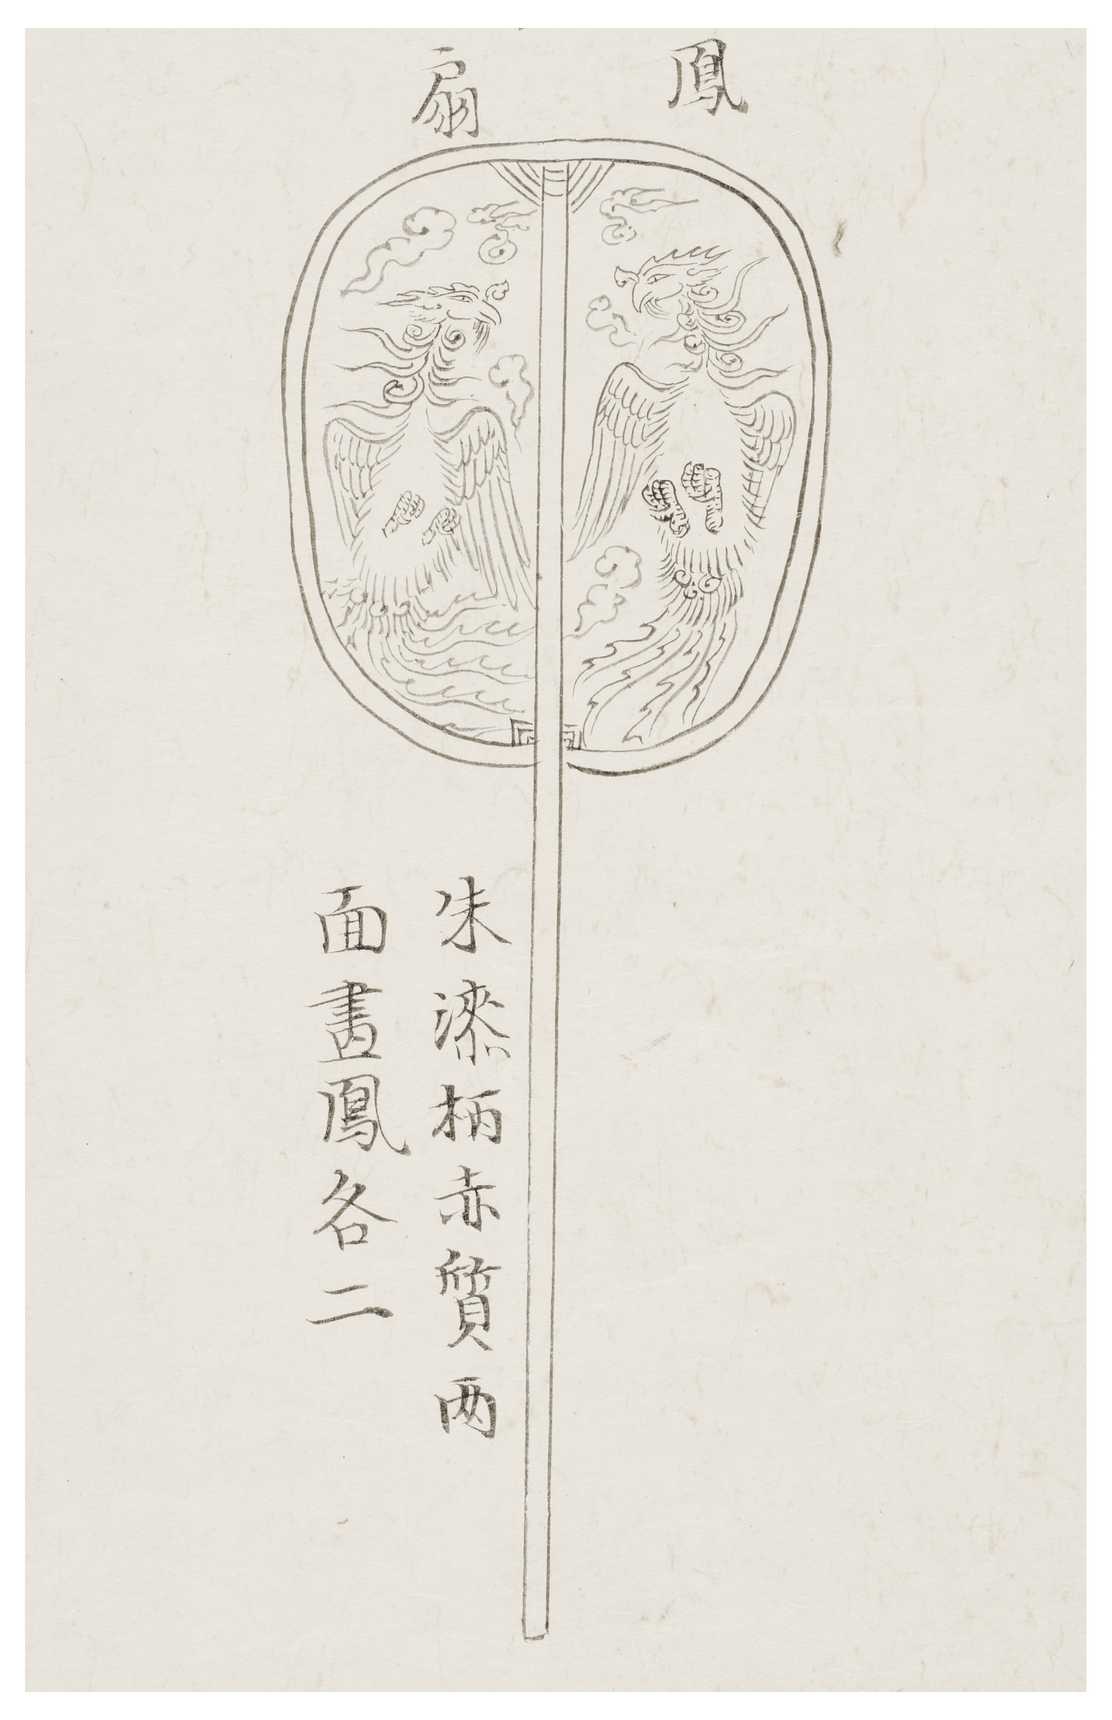 鳳扇
朱漆柄赤質两
面畫鳳各二